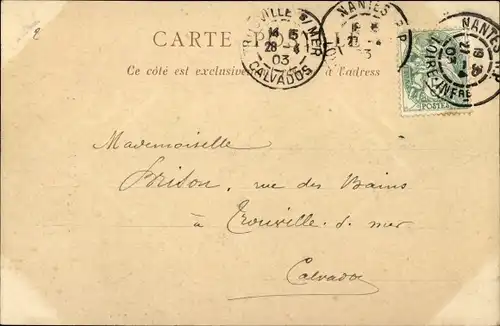 CARTE POSTALE
Ce côté est exclusivement à l'adresse
TROUVILLE S/ MER
14 15
28 4
03
CALVADOS
NANTES R.P.
27 4
03
NANTES
27 4
03
LOIRE-INFRE
POSTES
Mademoiselle
Brison, rue des Bains
à Trouville. s. mer
Calvados